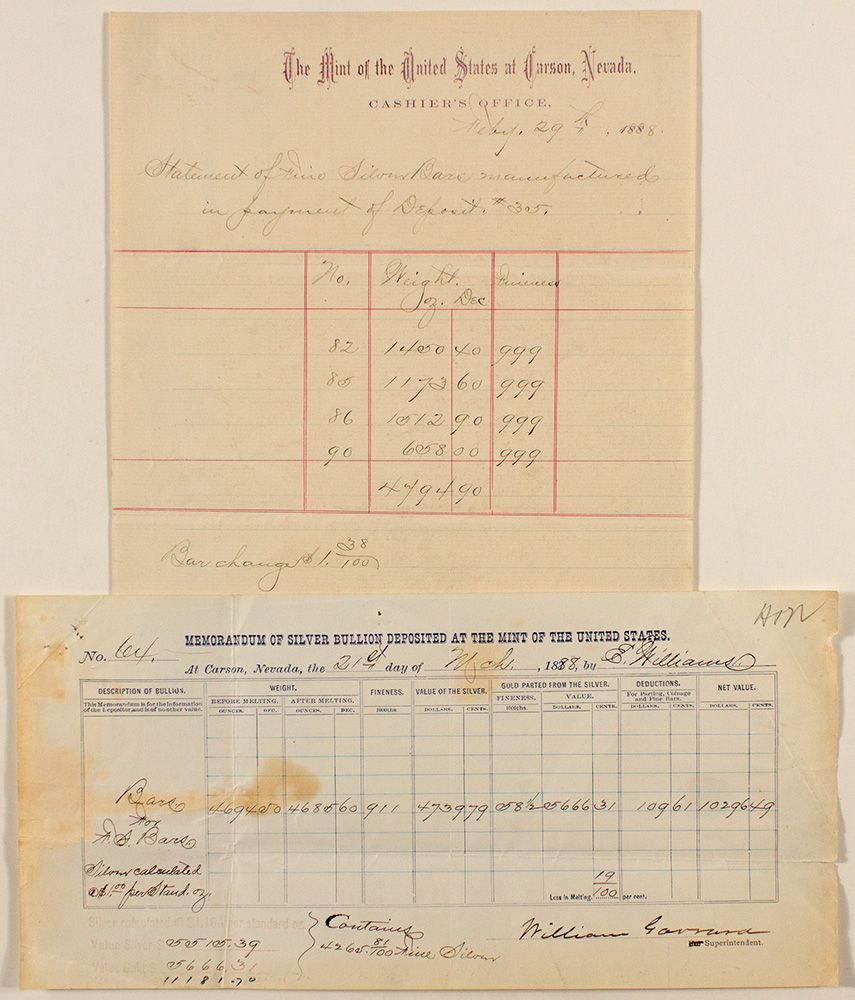 The Mint of the United States at Carson, Nevada.
CASHIER'S OFFICE,
Feby. 29th, 1888.
Statement of Fine Silver Bars manufactured
in payment of Deposit. #305.
No. Weight. Fineness
oz. Dec
82 1450 40 999
85 1173 60 999
86 1512 90 999
90 658 00 999
4794 90
Bar charge $1. 38/100
Hon
MEMORANDUM OF SILVER BULLION DEPOSITED AT THE MINT OF THE UNITED STATES.
No. 64.
At Carson, Nevada, the 21st day of Mch, 1888, by E. Williams
DESCRIPTION OF BULLION. WEIGHT. FINENESS. VALUE OF THE SILVER. GOLD PARTED FROM THE SILVER. DEDUCTIONS. NET VALUE.
This Memorandum is for the information of the Depositor, and is of no other value. BEFORE MELTING. AFTER MELTING. FINENESS. VALUE. For Parting, Coinage and Fine Bars.
OUNCES. DEC. OUNCES. DEC. 1000ths DOLLARS. CENTS. 1000ths DOLLARS. CENTS. DOLLARS. CENTS. DOLLARS. CENTS.
Bars 4694 50 4685 60 911 4739 79 58½ 5666 31 109 61 10296 49
For
F.S. Bars
Silver calculated
@ $1.00 per Stand. oz.
Less in Melting 19/100 per cent.
Silver calculated @ $1.16 per standard oz.
Value Silver $ 5515.39
Value Gold $ 5666.31
11181.70
Contains
4265.81/100 Fine Silver
William Garrard
Superintendent.